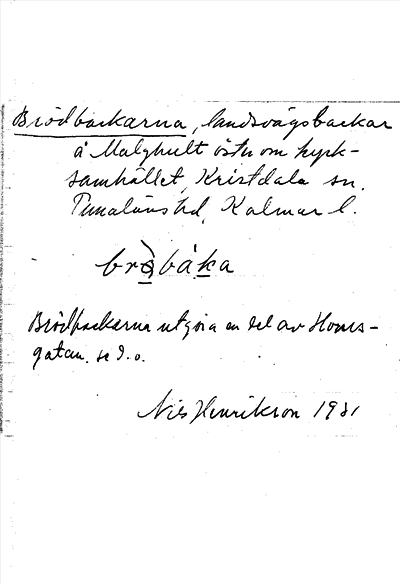 Brödbackarna, landsvägsbackar
å Malghult öster om kyrk-
samhället, Kristdala sn.
Tunaläns hd, Kalmar l.
bròbáka
Brödbackarna utgöra en del av Homs-
gatan. se d. o.
Nils Henrikson 1931